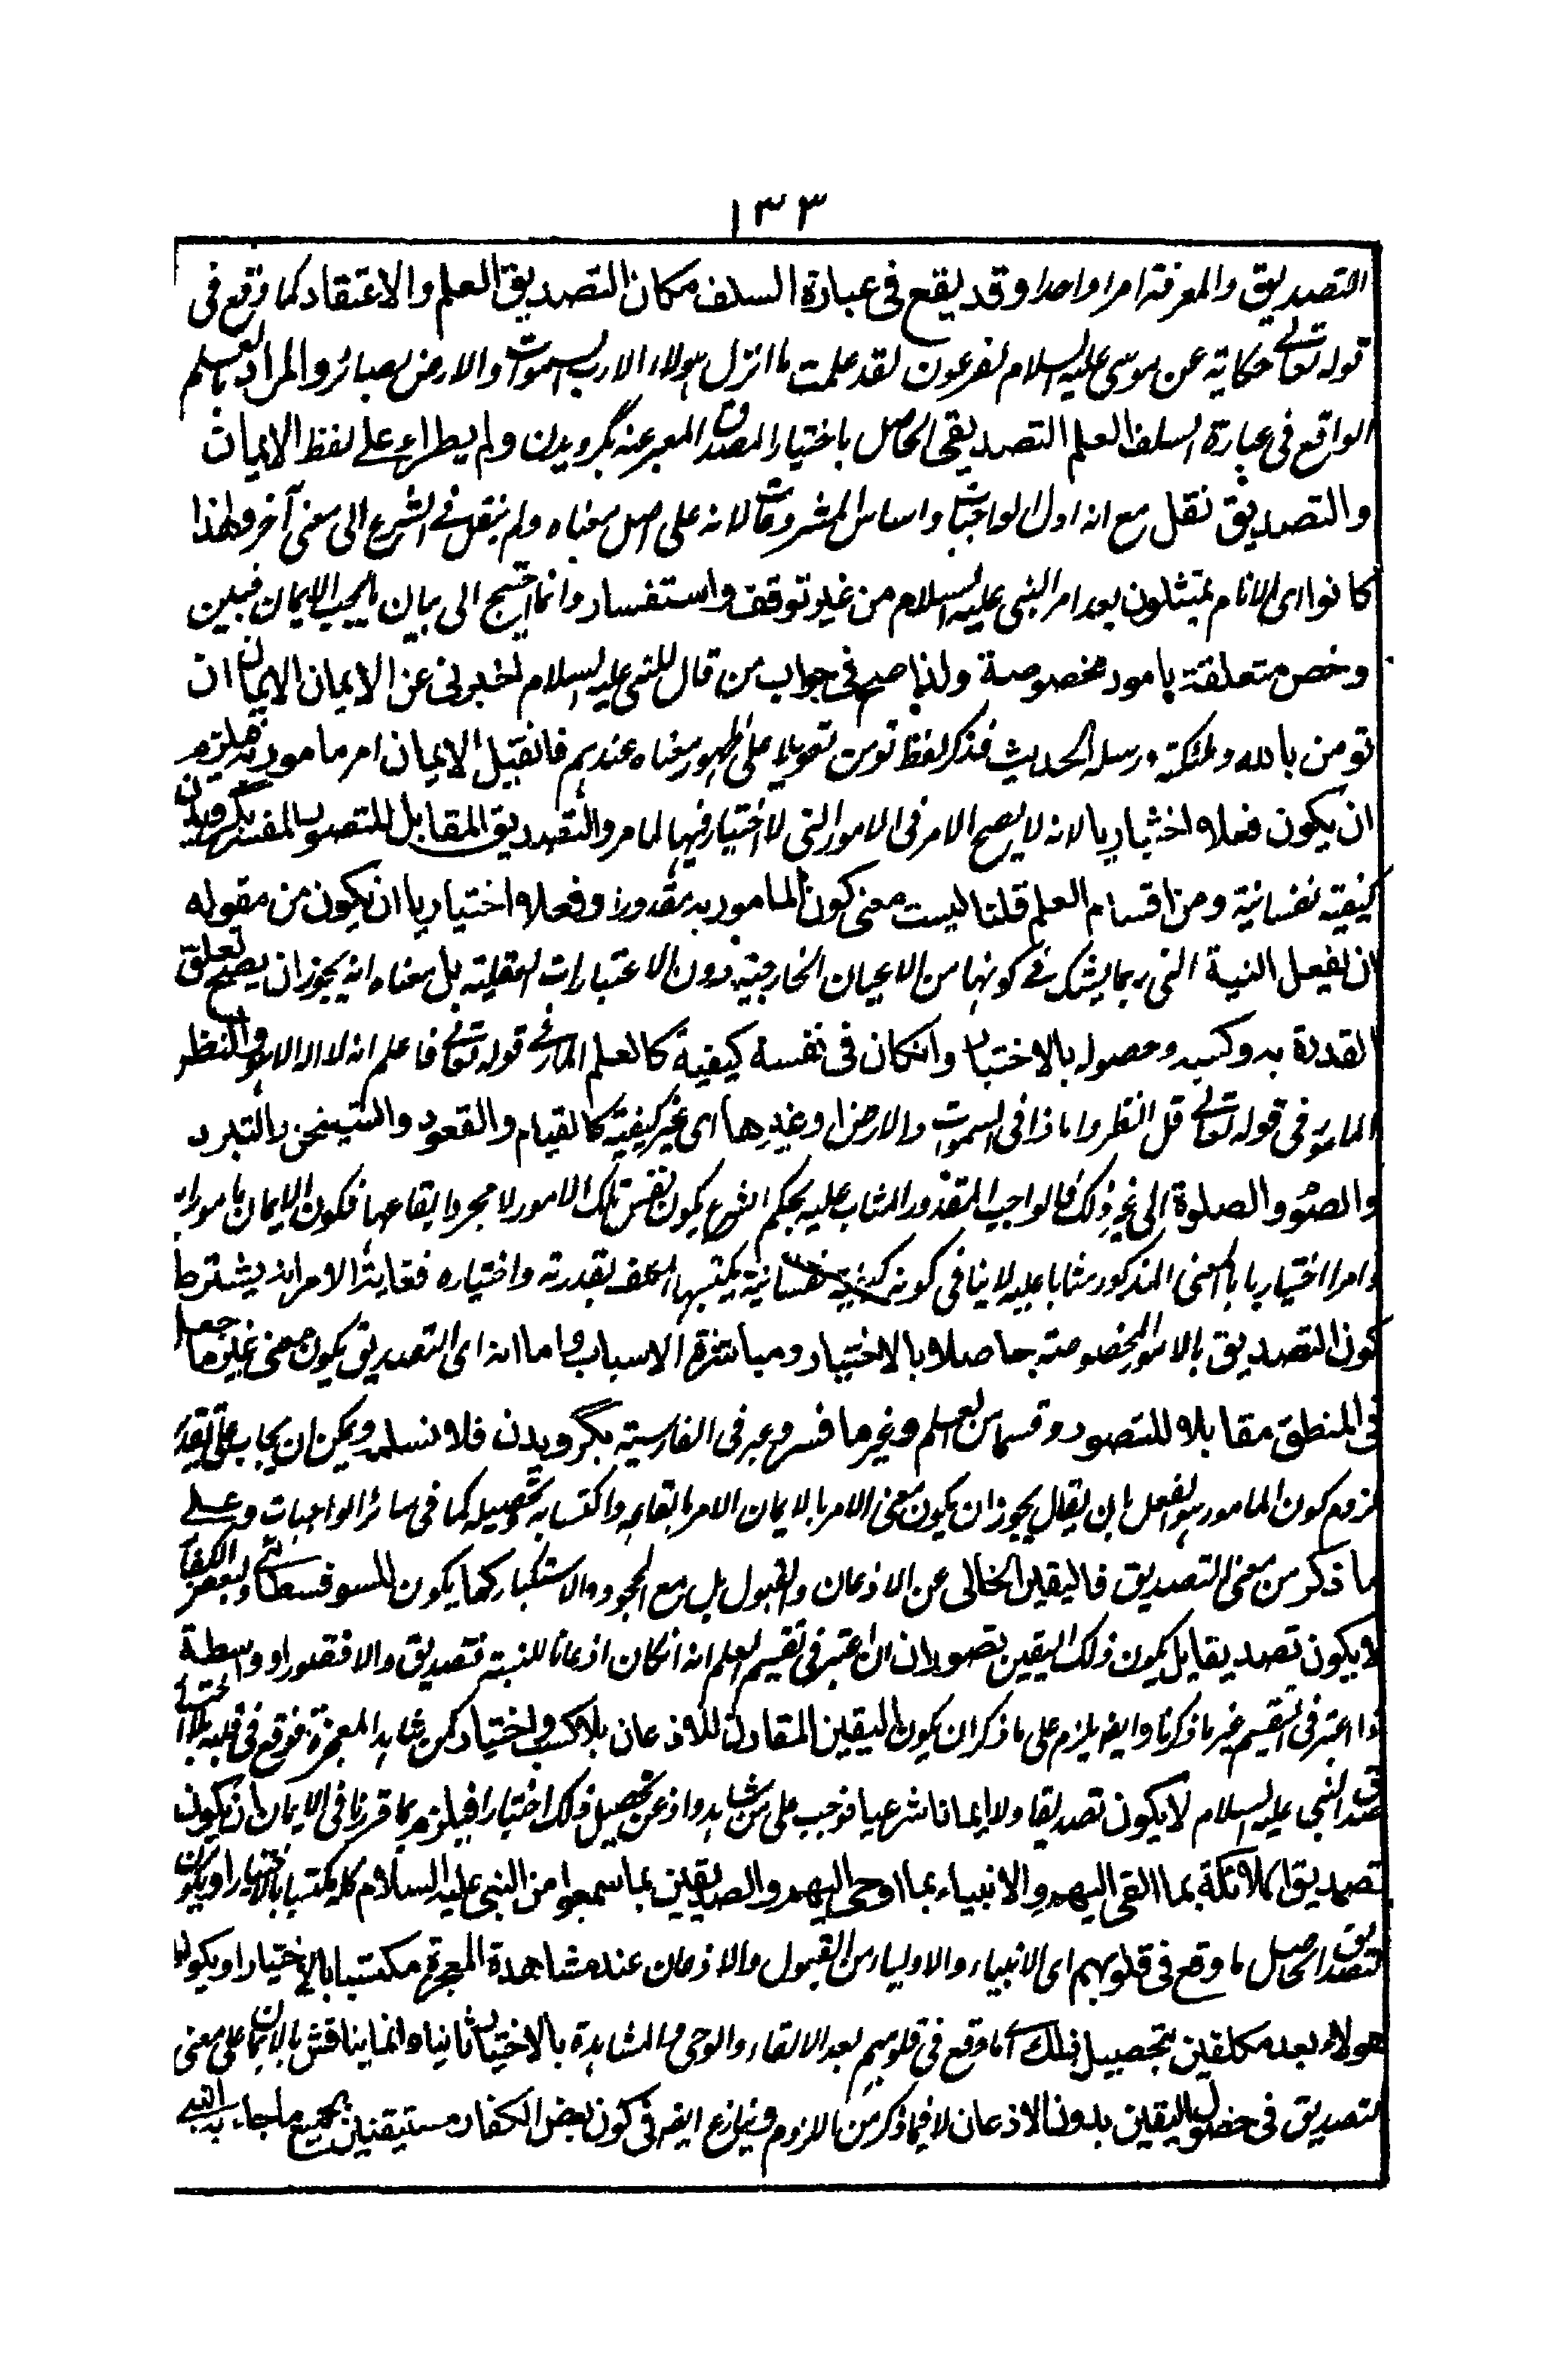 ١٣٣
التصديق والمعرفة امرا واحدا وقد يقع فى عبارة السلف مكان التصديق العلم والاعتقاد كما وقع فى
قوله تعالے حكاية عن موسى عليه السلام لفرعون لقد علمت ما انزل هولاء الا رب السموات والارض بصائر والمراد بالعلم
الواقع فى عبارة السلف العلم التصديقى الحاصل باختيار المصدق المعبر عنه بگرويدن ولم يطراء على لفظ الايمان
والتصديق نقل مع انه اول الواجبات واساس المشروعات لانه على اصل معناه ولم ينقل فے الشرع الى معنى آخر ولهذا
كانوا اى الانام يمتثلون بعد امر النبى عليه السلام من غير توقف واستفسار وانما احتيج الى بيان ما يجب الايمان فبين
وخص متعلقة بامور مخصوصة ولذا صح فى جواب من قال للنبى عليه السلام اخبرنى عن الايمان الايمان ان
تومن بالله وملئكته ورسله الحديث فذكر لفظ تومن تعويلا على ظهور معناه عندهم فان قيل الايمان امر مامور به فيلزم
ان يكون فعلا اختياريا لانه لا يصح الامر فى الامور التى لا اختيار فيها لما مر والتصديق المقابل للتصور المفسر بگرويدن
كيفية نفسانية ومن اقسام العلم قلنا ليست معنى كون المامور به مقدورا وفعلا اختياريا ان يكون من مقوله
ان يفعل النسبة التى ربما يشك فے كونها من الاعيان الخارجية دون الاعتبارات العقلية بل معناه انه يجوز ان يصح تعلق
القدرة به وكسبه وحصوله بالاختيار وانكان فى نفسه كيفية كالعلم المار فے قوله تعالے فاعلم انه لا اله الا هو والنظر
المامور فى قوله تعالے قل انظروا ماذا فى السموات والارض او غيرها اى غير كيفية كالقيام والقعود والتسخن والتبرد
والصوم والصلوة الى غير ذلك فالواجب المقدور المثاب عليه بحكم الشرع يكون نفس تلك الامور لا مجرد ايقاعها فكون الايمان مامورا به
وامرا اختياريا بالمعنى المذكور مثابا عليه لا ينافى كونه كيفية نفسانية يكتسبها المكلف بقدرته واختياره فغاية الامر انه يشترط
كون التصديق بالامور المخصوصة حاصلا بالاختيار ومباشرة الاسباب واما انه اى التصديق يكون معنى غير ما جعل
فى المنطق مقابلا للتصور وقسما من العلم وغير ما فسر وعبر فى الفارسية بگرويدن فلا نسلم ويمكن ان يجاب على تقدير
لزوم كون المامور به الفعل بان يقال يجوز ان يكون معنى الامر بالايمان الامر بايقاعه واكتسابه وتحصيله كما فى سائر الواجبات وعلى
ما ذكر من معنى التصديق فاليقين الخالى عن الاذعان والقبول بل مع الجحود والاستكبار كما يكون للسوفسطائى وبعض الكفار
لا يكون تصديقا بل يكون ذلك اليقين تصورا ان اعتبر فى تقسيم العلم انه انكان اذعانا للنسبة فتصديق والا فتصور او واسطة
اذا اعتبر فى التقسيم غير ما ذكرنا وايضا يلزم على ما ذكر ان يكون اليقين المقارن للاذعان بلا كسب واختيار كمن شاهد المعجزة فوقع فى قلبه بلا اختيار
صدق النبى عليه السلام لا يكون تصديقا ولا ايمانا شرعيا فوجب على من شاهد واذعن تحصيل ذلك اختيارا فيلزم بما قررنا فى الايمان ان يكون
تصديق الملائكة بما القى اليهم والانبياء بما اوحى اليهم والصديقين بما سمعوا من النبى عليه السلام كله مكتسبا بالاختيار او يكون
تصديق الحاصل ما وقع فى قلوبهم اى الانبياء والاولياء من القبول والاذعان عند مشاهدة المعجزة مكتسبا بالاختيار او يكون
هولاء بعد مكلفين بتحصيل ذلك اى ما وقع فى قلوبهم بعد الالقاء والوحى والمشاهدة بالاختيار ثانيا وانما يناقش بالايمان على معنى
التصديق فى حصول اليقين بدون الاذعان لا فيما ذكر من اللزوم وينازع ايضا فى كون بعض الكفار مستيقنين بجميع ما جاء به النبى